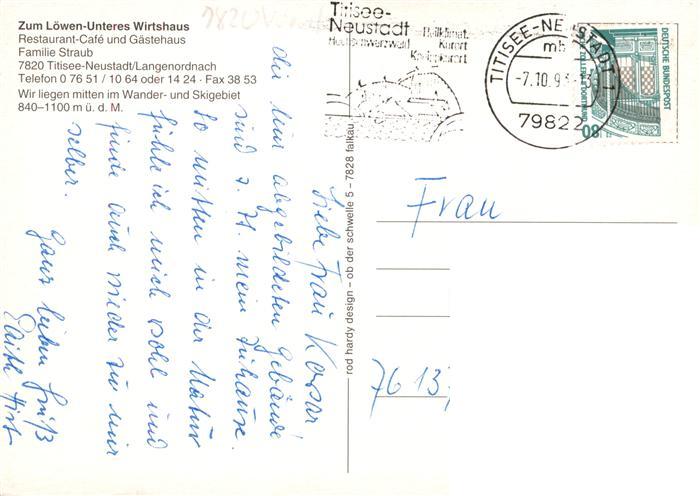 Zum Löwen-Unteres Wirtshaus
Restaurant-Café und Gästehaus
Familie Straub
7820 Titisee-Neustadt/Langenordnach
Telefon 0 76 51 / 10 64 oder 14 24 · Fax 38 53
Wir liegen mitten im Wander- und Skigebiet
840–1100 m ü. d. M.
Liebe Frau
die hier abgebildeten Gebäude
sind z. Zt. mein Zuhause.
So mitten in der Natur
fühle ich mich wohl und
finde auch wieder zu mir
selber. Ganz lieben Gruß
Edith
rod hardy design – ob der schwelle 5 – 7828 falkau
Titisee-
Neustadt
Hochschwarzwald
Heilklimat.
Kurort
Kneippkurort
TITISEE-NEUSTADT 1
mb
-7.10.93-13
79822
DEUTSCHE BUNDESPOST
ZECHE ZOLLERN II DORTMUND
80
Frau
7613